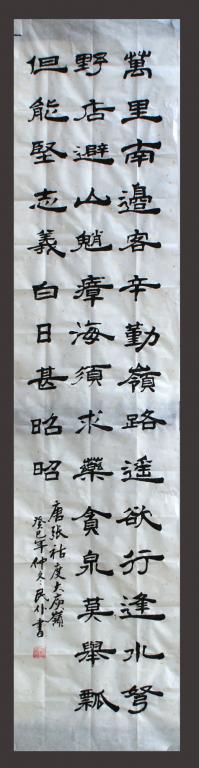 萬里南邊客辛勤嶺路遥欲行逢水弩
野店避山魈瘴海須求藥貪泉莫舉瓢
但能堅志義白日甚昭昭
唐張祜度大庾嶺
癸巳年仲冬民仆書